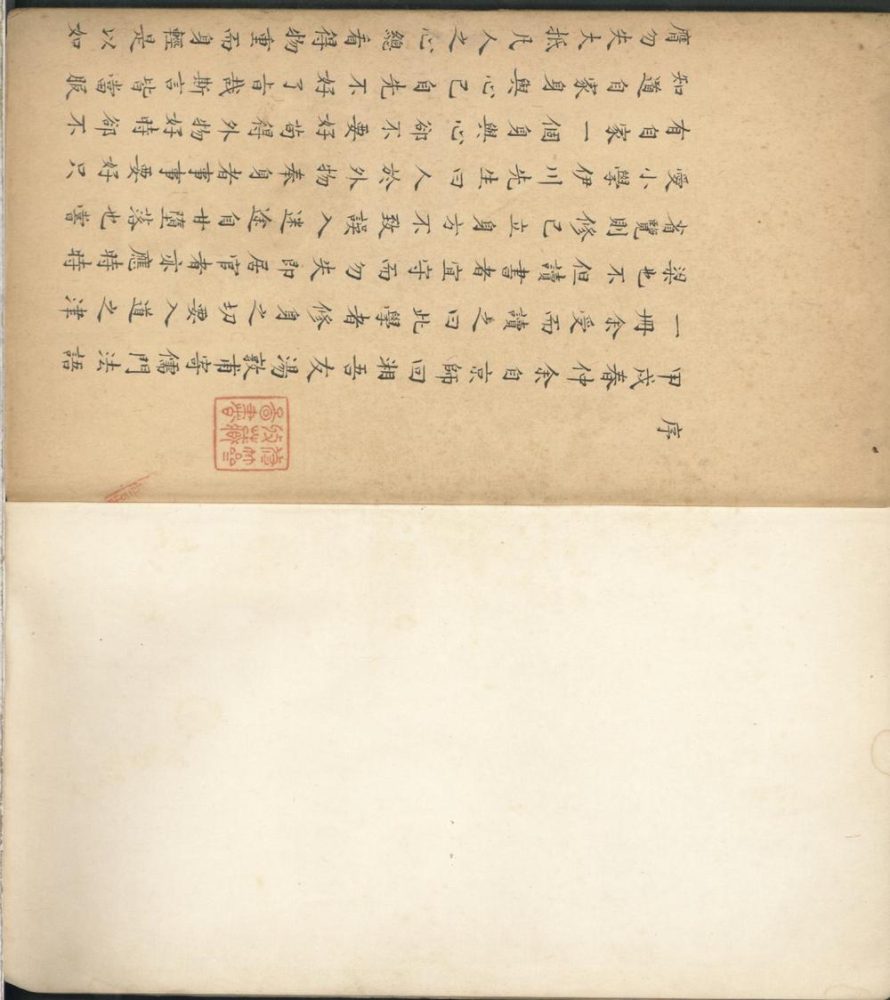 序
甲戌春仲余自京師回湘吾友湯敦甫寄儒門法語
一冊余受而讀之曰此學者修身之切要入道之津
梁也不但讀書者宜守而勿失即居官者亦應時時
省覽則修己立身方不致誤入迷途自甘墮落也嘗
愛小學伊川先生曰人於外物奉身者事事要好只
有自家一個身與心卻不要好苟得外物好時卻不
知道自家身與心已自先不好了旨哉斯言皆當服
膺勿失大抵凡人之心總看得物重而身輕是以如